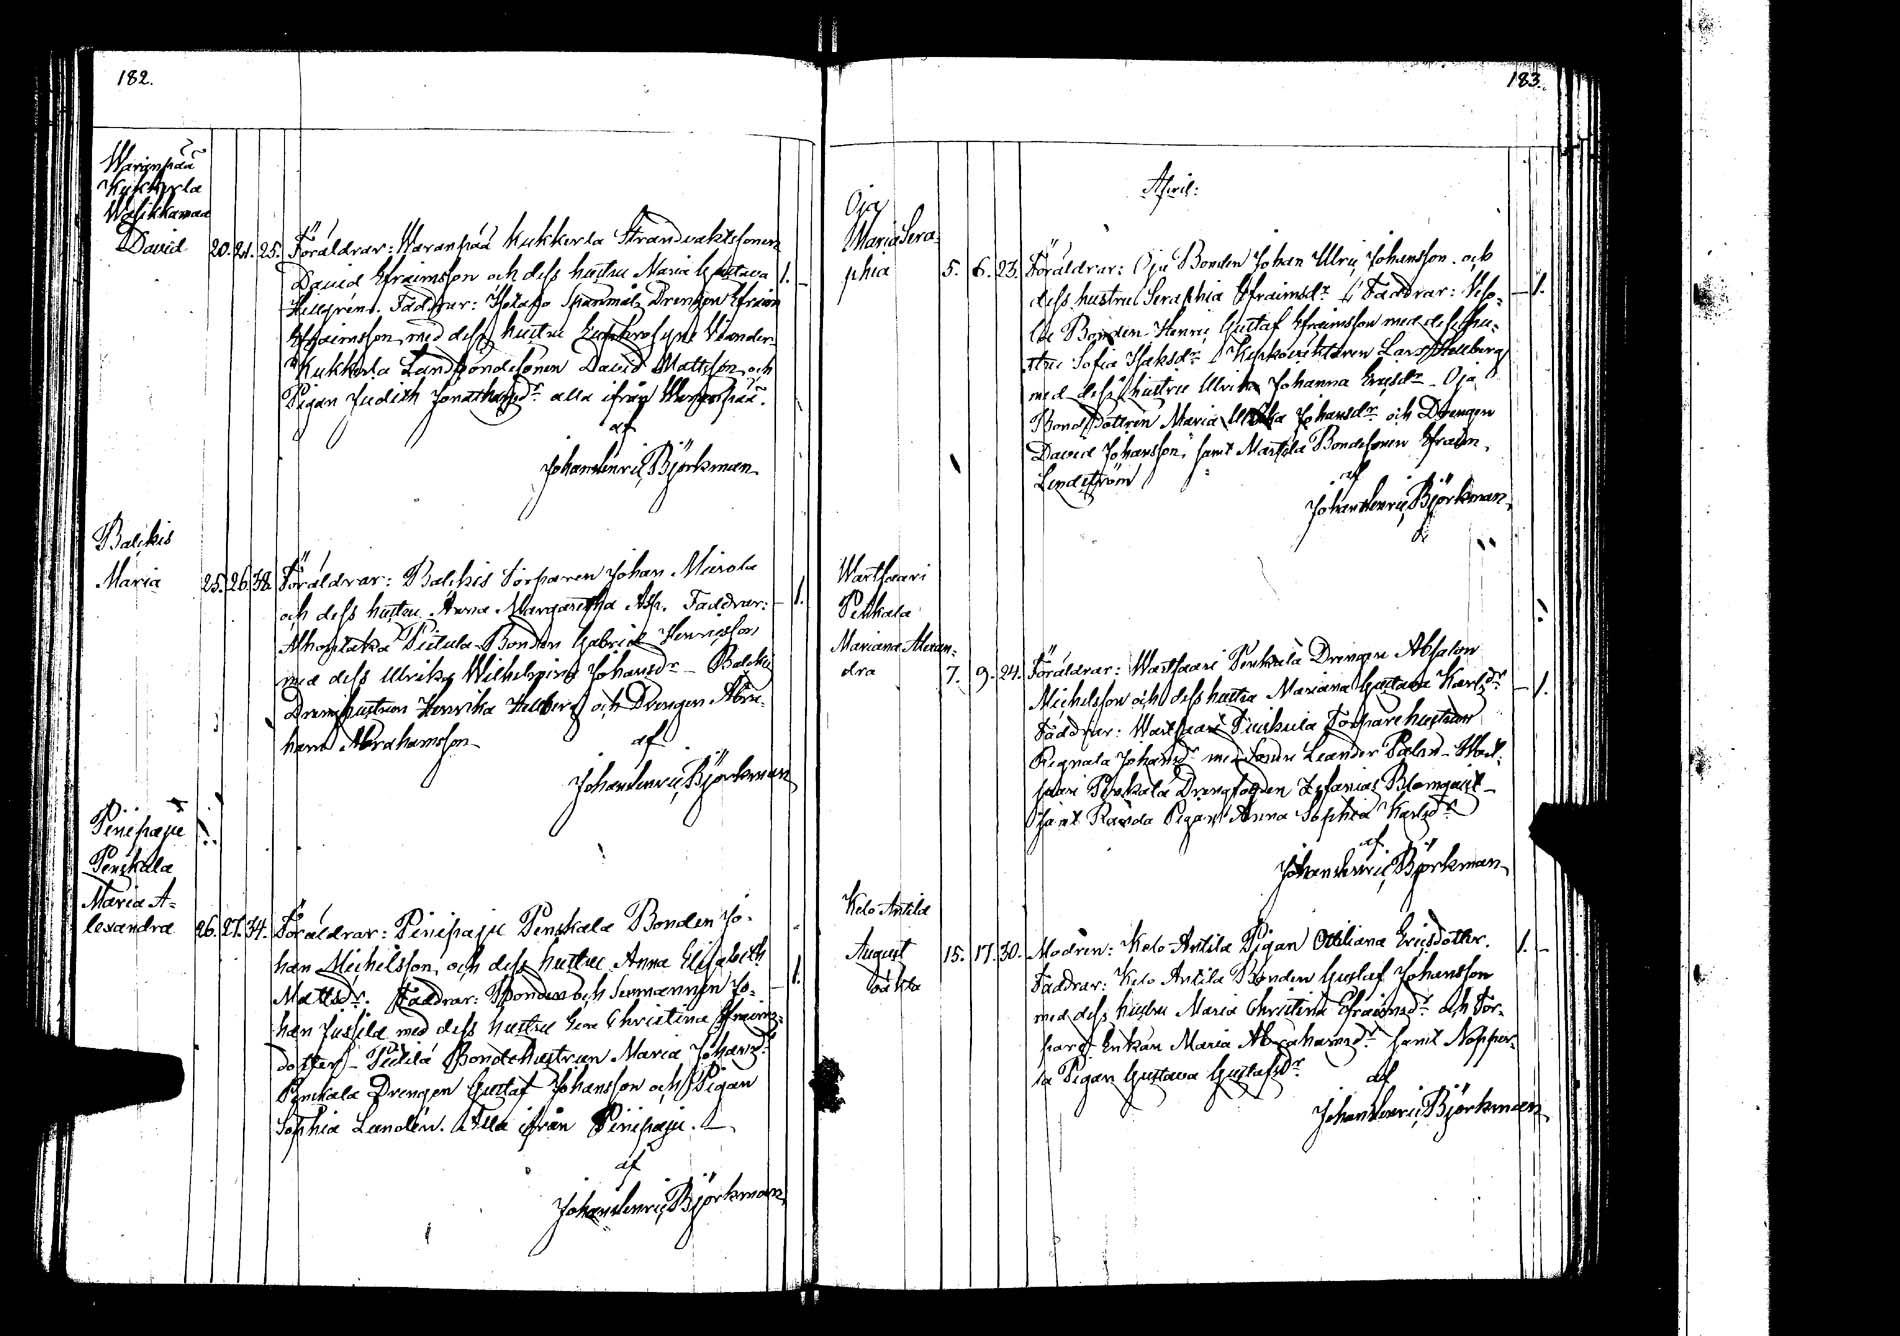 182.
Waranpää
Kukkerla
Wäsikkamaa
David 20. 21. 25. Föräldrar: Waranpää Kukkerla Strandvaktssonen
David Efraimsson och dess hustru Maria Gustava 1.
Hellgrén. Faddrar: Spanmåls Drengen Efraim
Efraimsson med dess hustru Euphrosyne Wander
Kukkerla Landbondesonen David Mattsson och
Pigan Judith Jonathansdr alla ifrån Waranpää.
af
Johan Henric Björkman
Balckis
Maria 25. 26. 38. Föräldrar: Balckis Torparen Johan Mierola
och dess hustru Anna Margaretha Ask. Faddrar: 1.
Bonden Gabriel Henricsson
med dess Ulrika Wilhelmina Johansdr - Balckis
Drenghustrun Henrika Hellberg och Drengen Abra-
ham Abrahamsson
af
Johan Henric Björkman
Pinipaju
Penskala
Maria A-
lexandra 26. 27. 34. Föräldrar: Pinipaju Penskala Bonden Jo-
han Michelsson och dess hustru Anna Elisabeth
Mattsdr. Faddrar: Bonden och Sexmannen Jo- 1.
han Jussila med dess hustru Eva Christina Efraims-
dotter - Bondehustrun Maria Johansdr
Penskala Drengen Gustaf Johansson och Pigan
Sophia Landén. Alla ifrån Pinipaju.
af
Johan Henric Björkman
183.
April:
Oja
Maria Sera-
phia 5. 6. 23. Föräldrar: Oja Bonden Johan Ulric Johansson och
dess hustru Seraphia Efraimsdr Faddrar: 1.
Bonden Henric Gustaf Efraimsson med dess hu-
stru Sofia Isaksdr Kyrkoväktaren Lars Hellberg
med dess hustru Ulrika Johanna Ericsdr - Oja
Bonddottren Maria Ulrika Johansdr och Drengen
David Johansson, samt Mattila Bondesonen Efraim
Lindström
af
Johan Henric Björkman
Wartsaari
Penkala
Mariana Alexan-
dra 7. 9. 24. Föräldrar: Wartsaari Penkala Drengen Absalon
Michelsson och dess hustru Mariana Gustava Karlsdr 1.
Faddrar: Wartsaari Torparehustrun
Regnala Johansdr med Sonen Leander - Wart-
saari Penkala Drengfogden Zefanias Blomqvist -
samt Pigan Anna Sophia Karlsdr
af
Johan Henric Björkman
Kelo Antila
August 15. 17. 30. Modren: Kelo Antila Pigan Ottiliana Ericsdotter. 1.
oäkta Faddrar: Kelo Antila Bonden Gustaf Johansson
med dess hustru Maria Christina Efraimsdr och Tor-
pare Enkan Maria Abrahamsdr samt Nopper-
la Pigan Gustava Gustafsdr
af
Johan Henric Björkman